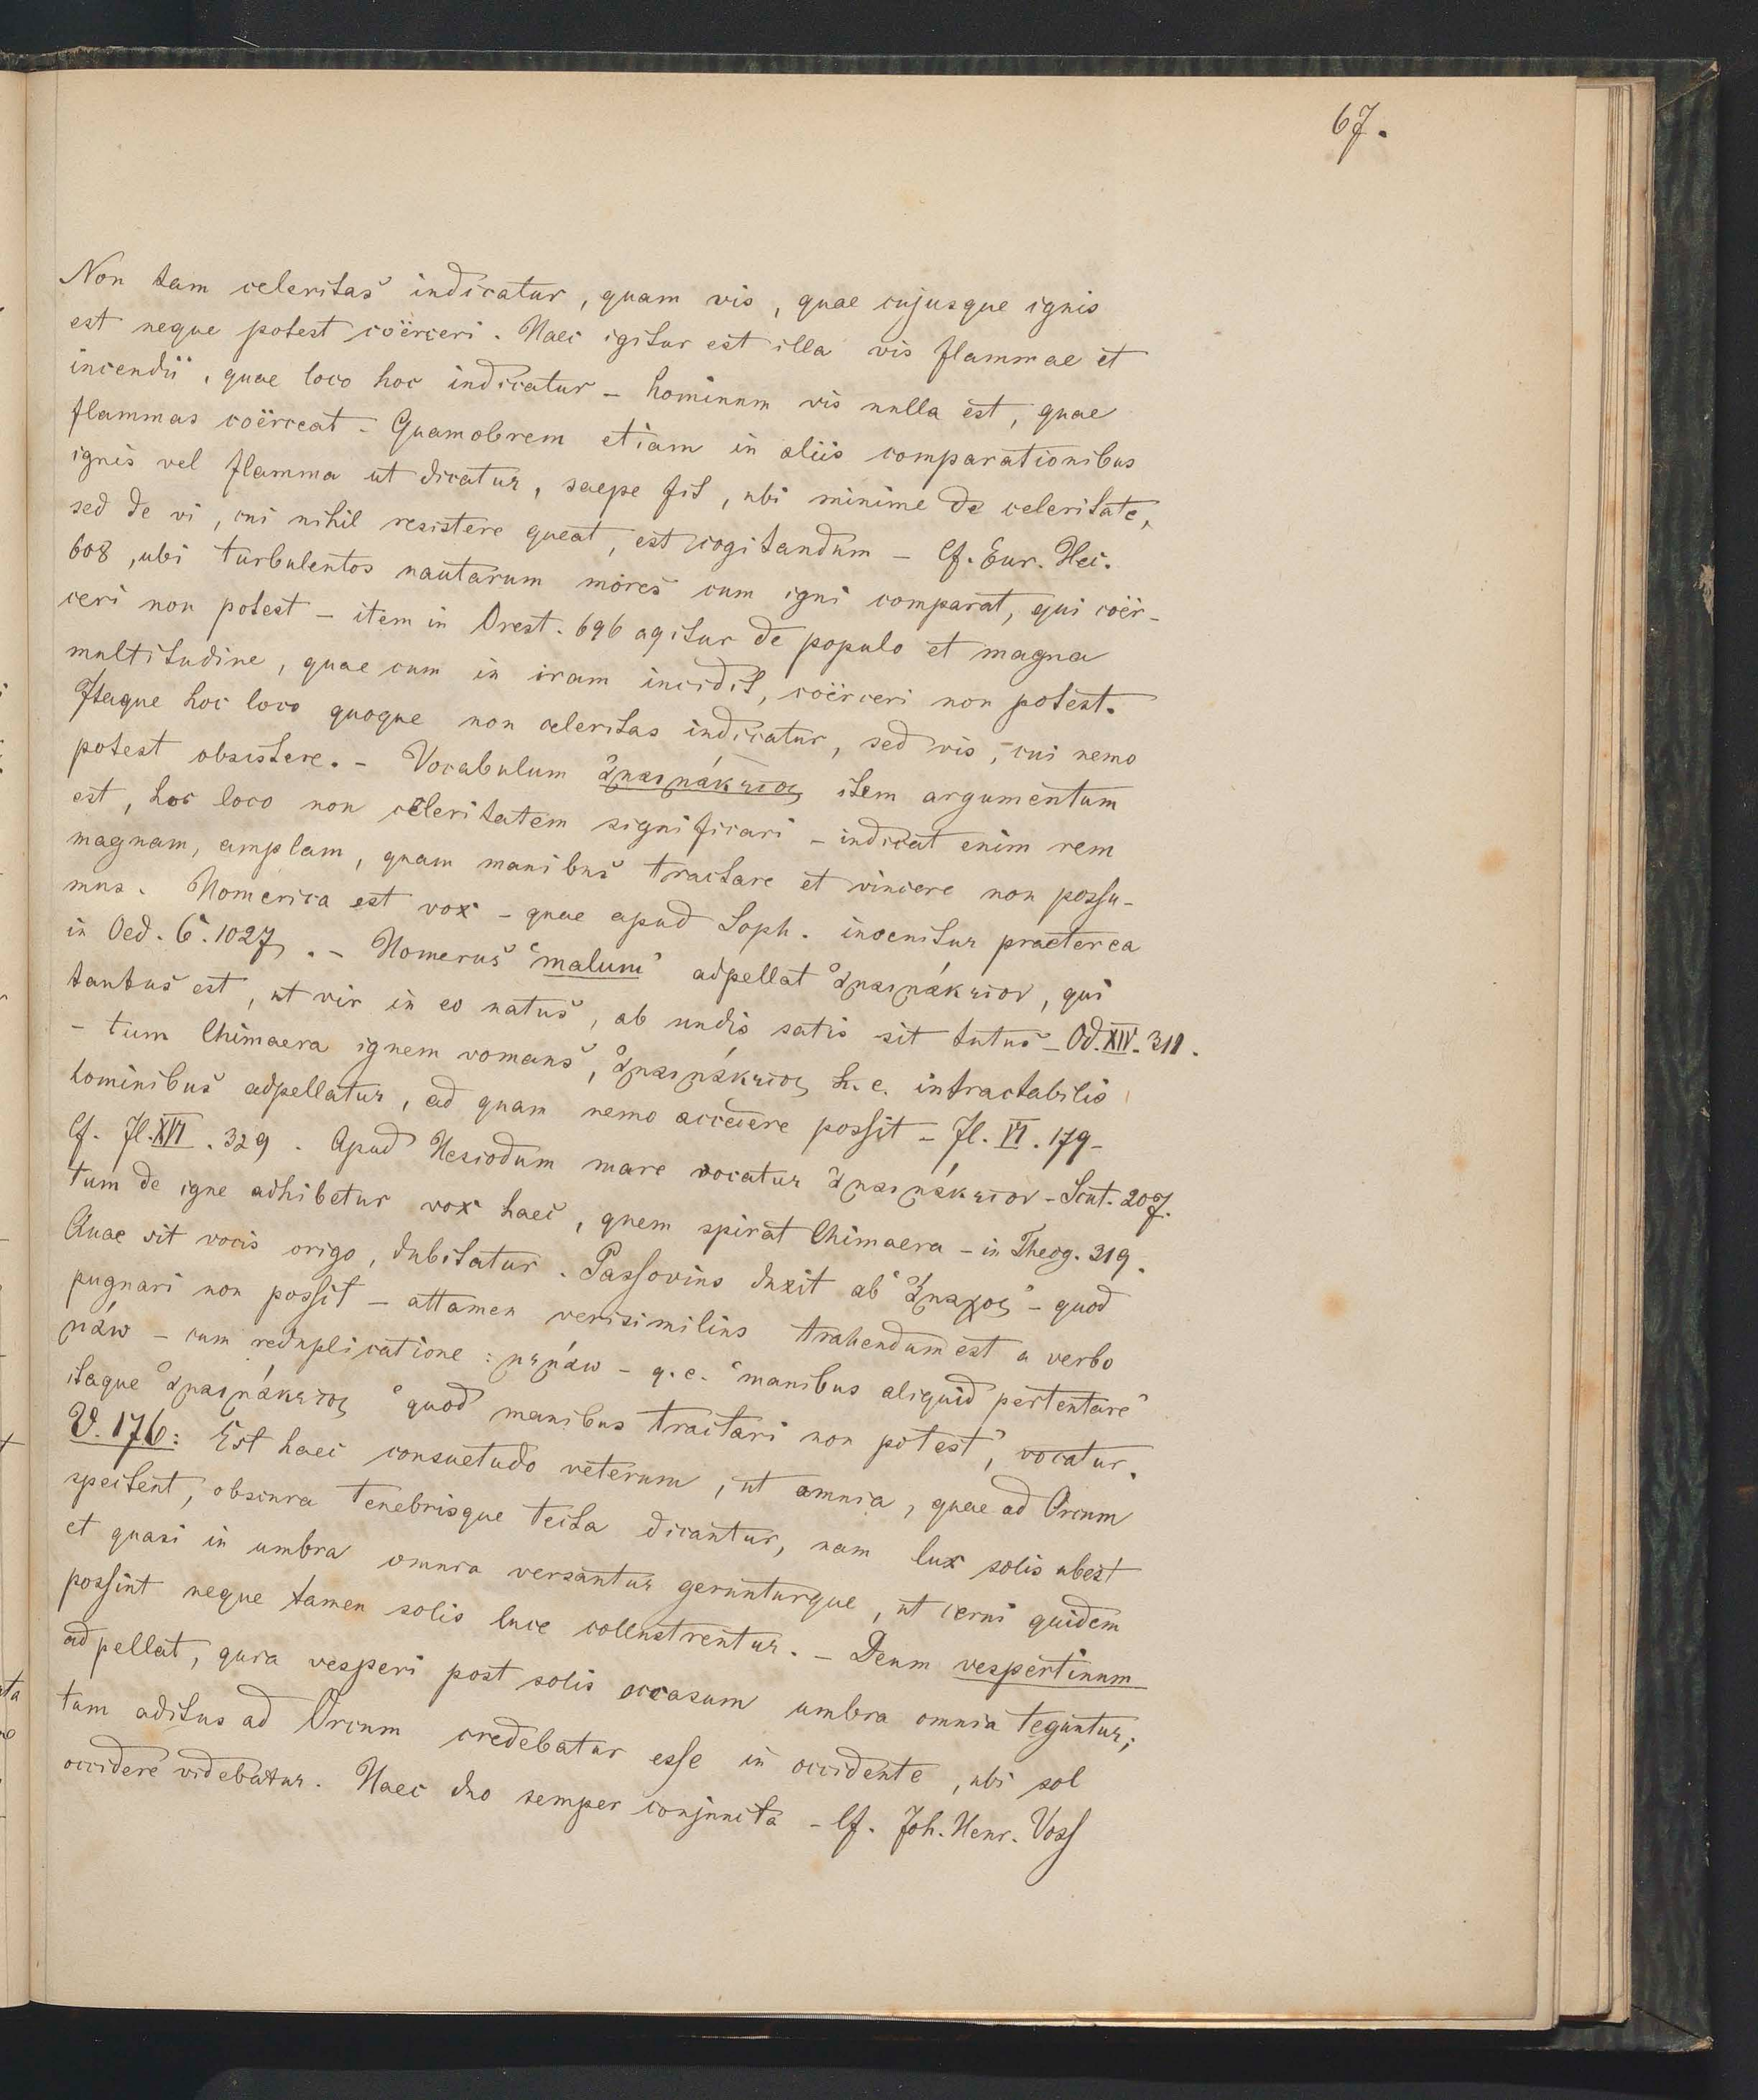 67.
Non tam celeritas indicatur, quam vis, quae cujusque ignis
est neque potest coërceri. Haec igitur est illa vis flammae et
incendii, quae loco hoc indicatur – hominum vis nulla est, quae
flammas coërceat – Quamobrem etiam in aliis comparationibus
ignis vel flamma ut dicatur, saepe fit, ubi minime de celeritate,
sed de vi, cui nihil resistere queat, est cogitandum – Cf. Eur. Hec.
608, ubi turbulentos nautarum mores cum igni comparat, qui coër-
ceri non potest – item in Orest. 696 agitur de populo et magna
multitudine, quae cum in iram incidit, coërceri non potest.
Itaque hoc loco quoque non celeritas indicatur, sed vis, cui nemo
potest obsistere. – Vocabulum ἀμαιμάκετος item argumentum
est, hoc loco non celeritatem significari – indicat enim rem
magnam, amplam, quam manibus tractare et vincere non possu-
mus. Homerica est vox – quae apud Soph. invenitur praeterea
in Oed. C. 127. – Homerus "malum" adpellat ἀμαιμάκετον, qui
tantus est, ut vir in eo natus, ab undis satis sit tutus – Od. XIV. 311.
– tum Chimaera ignem vomans, ἀμαιμάκετος h. e. intractabilis
hominibus adpellatur, ad quam nemo accedere possit – Il. VI. 179 –
Cf. Il. XVI. 329. Apud Hesiodum mare vocatur ἀμαιμάκετον – Scut. 207.
tum de igne adhibetur vox haec, quem spirat Chimaera – in Theog. 319.
Quae sit vocis origo, dubitatur. Passovius duxit ab "ἄμαχος" – quod
pugnari non possit – attamen verisimilius trahendum est a verbo
μάω – cum reduplicatione: μεμάω – q. e. "manibus aliquid pertentare"
itaque ἀμαιμάκετος "quod manibus tractari non potest", vocatur.
V. 176: Est haec consuetudo veterum, ut omnia, quae ad Orcum
spectent, obscura tenebrisque tecta dicantur, nam lux solis abest
et quasi in umbra omnia versantur geruntur­que, ut cerni quidem
possint neque tamen solis luce collustrentur. – Deum vespertinum
adpellat, quia vesperi post solis occasum umbra omnia teguntur;
tum aditus ad Orcum credebatur esse in occidente, ubi sol
occidere videbatur. Haec duo semper conjuncta – Cf. Joh. Henr. Voss